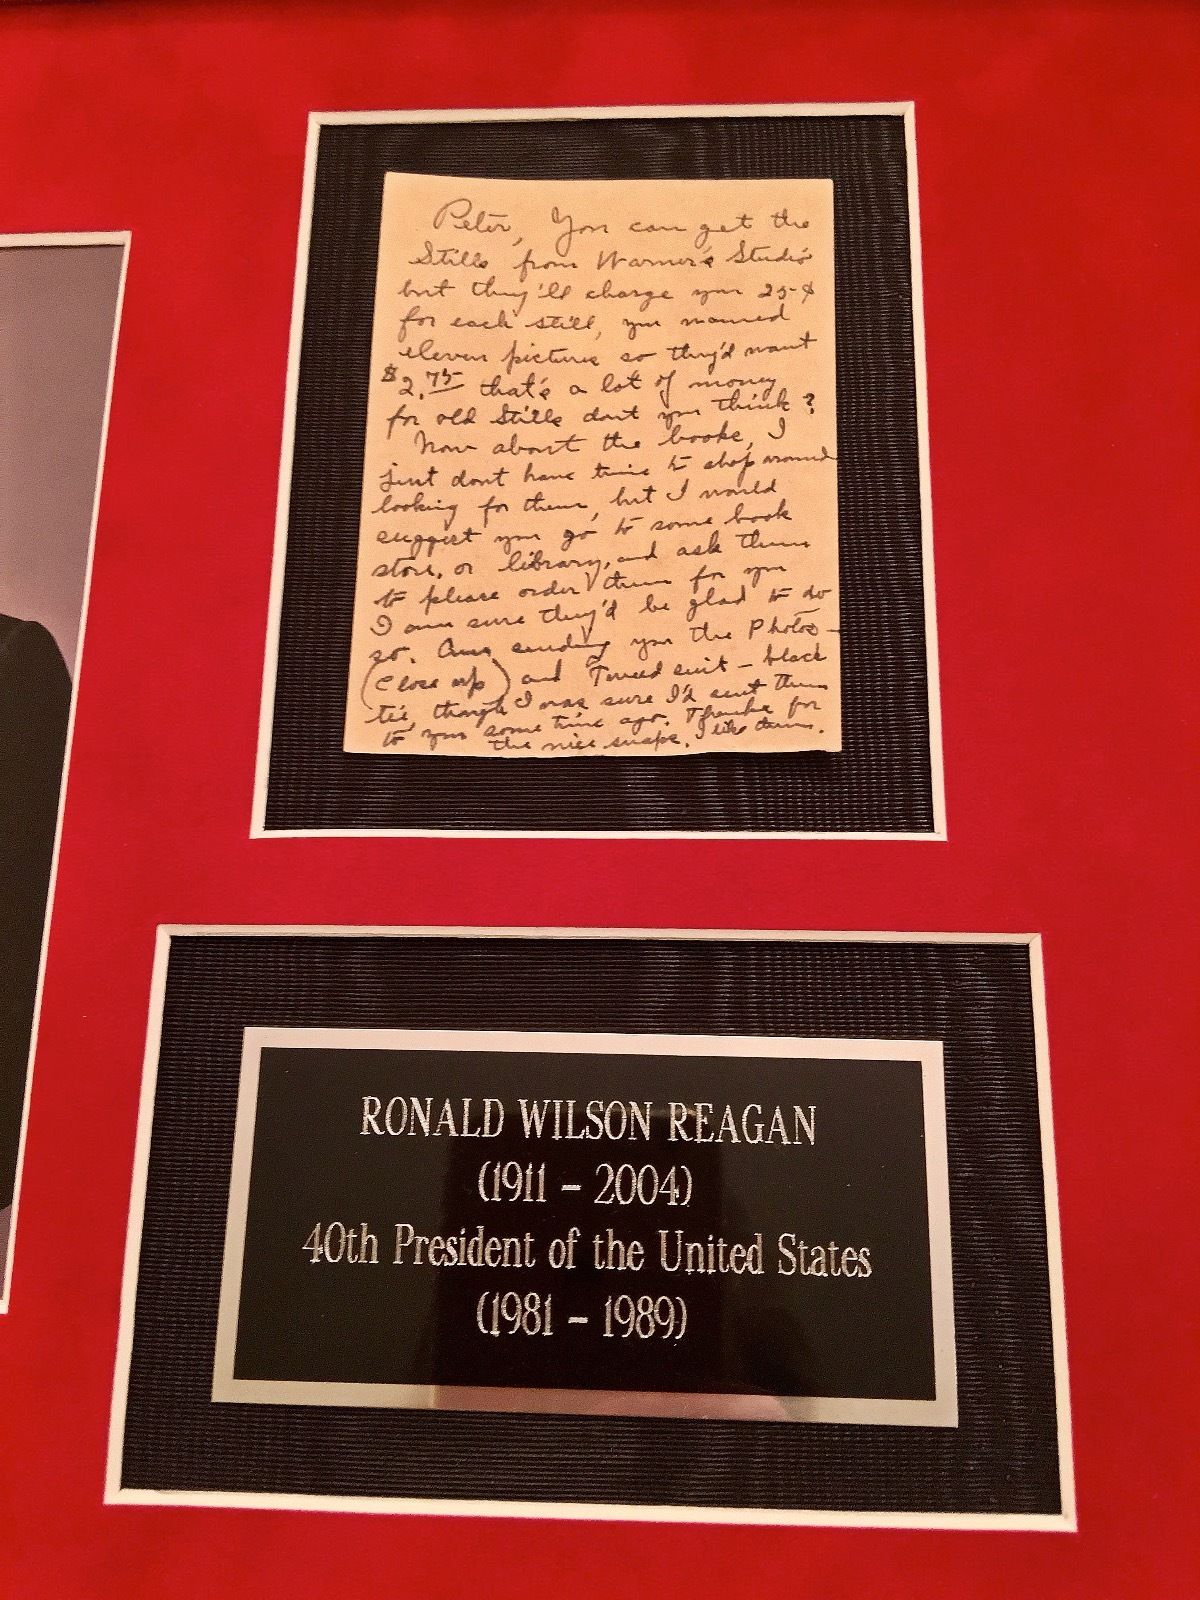 Peter, You can get the
Stills from Warner's Studio
but they'll charge you 25¢
for each still, you named
eleven pictures so they'd want
$2.75 that's a lot of money
for old Stills dont you think?
Now about the books, I
just dont have time to shop around
looking for them, but I would
suggest you go to some book
store, or library, and ask them
to please order them for you
I am sure they'd be glad to do
so. Am sending you the Photos –
(close up) and Tweed suit – black
tie, though I was sure I'd sent them
to you some time ago. Thanks for
the nice snaps. I like them.
RONALD WILSON REAGAN
(1911 – 2004)
40th President of the United States
(1981 – 1989)